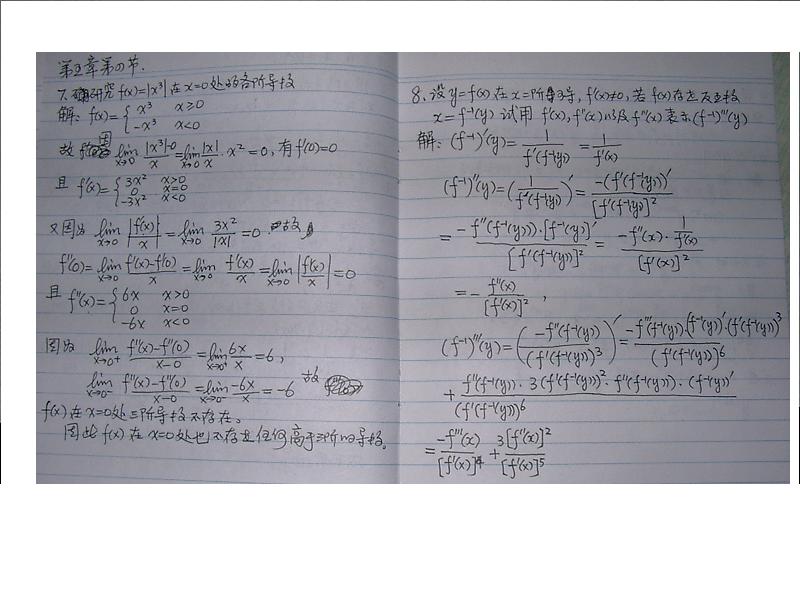 第五章第四节.
7. 研究 f(x)=|x³| 在 x=0处的各阶导数
解: f(x)={ x³ x≥0
-x³ x<0
故 因 lim x→0 |x³|-0/x = lim x→0 |x|/x · x² = 0, 有 f'(0)=0
且 f'(x)={ 3x² x>0
0 x=0
-3x² x<0
又因为 lim x→0 |f'(x)/x| = lim x→0 3x²/|x| = 0 故
f''(0)= lim x→0 f'(x)-f'(0)/x = lim x→0 f'(x)/x = lim x→0 |f'(x)/x| = 0
且 f''(x)={ 6x x>0
0 x=0
-6x x<0
因为 lim x→0⁺ f''(x)-f''(0)/x-0 = lim x→0⁺ 6x/x = 6,
lim x→0⁻ f''(x)-f''(0)/x-0 = lim x→0⁻ -6x/x = -6 故
f(x) 在 x=0处三阶导数不存在。
因此 f(x) 在 x=0处也不存在任何高于三阶的导数。
8. 设 y=f(x) 在 x 三阶可导, f'(x)≠0, 若 f(x)存在反函数
x=f⁻¹(y) 试用 f'(x), f''(x)以及 f'''(x) 表示 (f⁻¹)'''(y)
解: (f⁻¹)'(y) = 1/f'(f⁻¹(y)) = 1/f'(x)
(f⁻¹)''(y) = (1/f'(f⁻¹(y)))' = -(f'(f⁻¹(y)))'/[f'(f⁻¹(y)]²
= -f''(f⁻¹(y))·[f⁻¹(y)]'/[f'(f⁻¹(y)]² = -f''(x)·1/f'(x)/[f'(x)]²
= -f''(x)/[f'(x)]²,
(f⁻¹)'''(y) = (-f''(f⁻¹(y))/(f'(f⁻¹(y))³)' = -f'''(f⁻¹(y))·(f⁻¹(y))'·(f'(f⁻¹(y)))³/(f'(f⁻¹(y))⁶
+ f''(f⁻¹(y))·3(f'(f⁻¹(y))²·f''(f⁻¹(y))·(f⁻¹(y))'/(f'(f⁻¹(y))⁶
= -f'''(x)/[f'(x)]⁴ + 3[f''(x)]²/[f'(x)]⁵